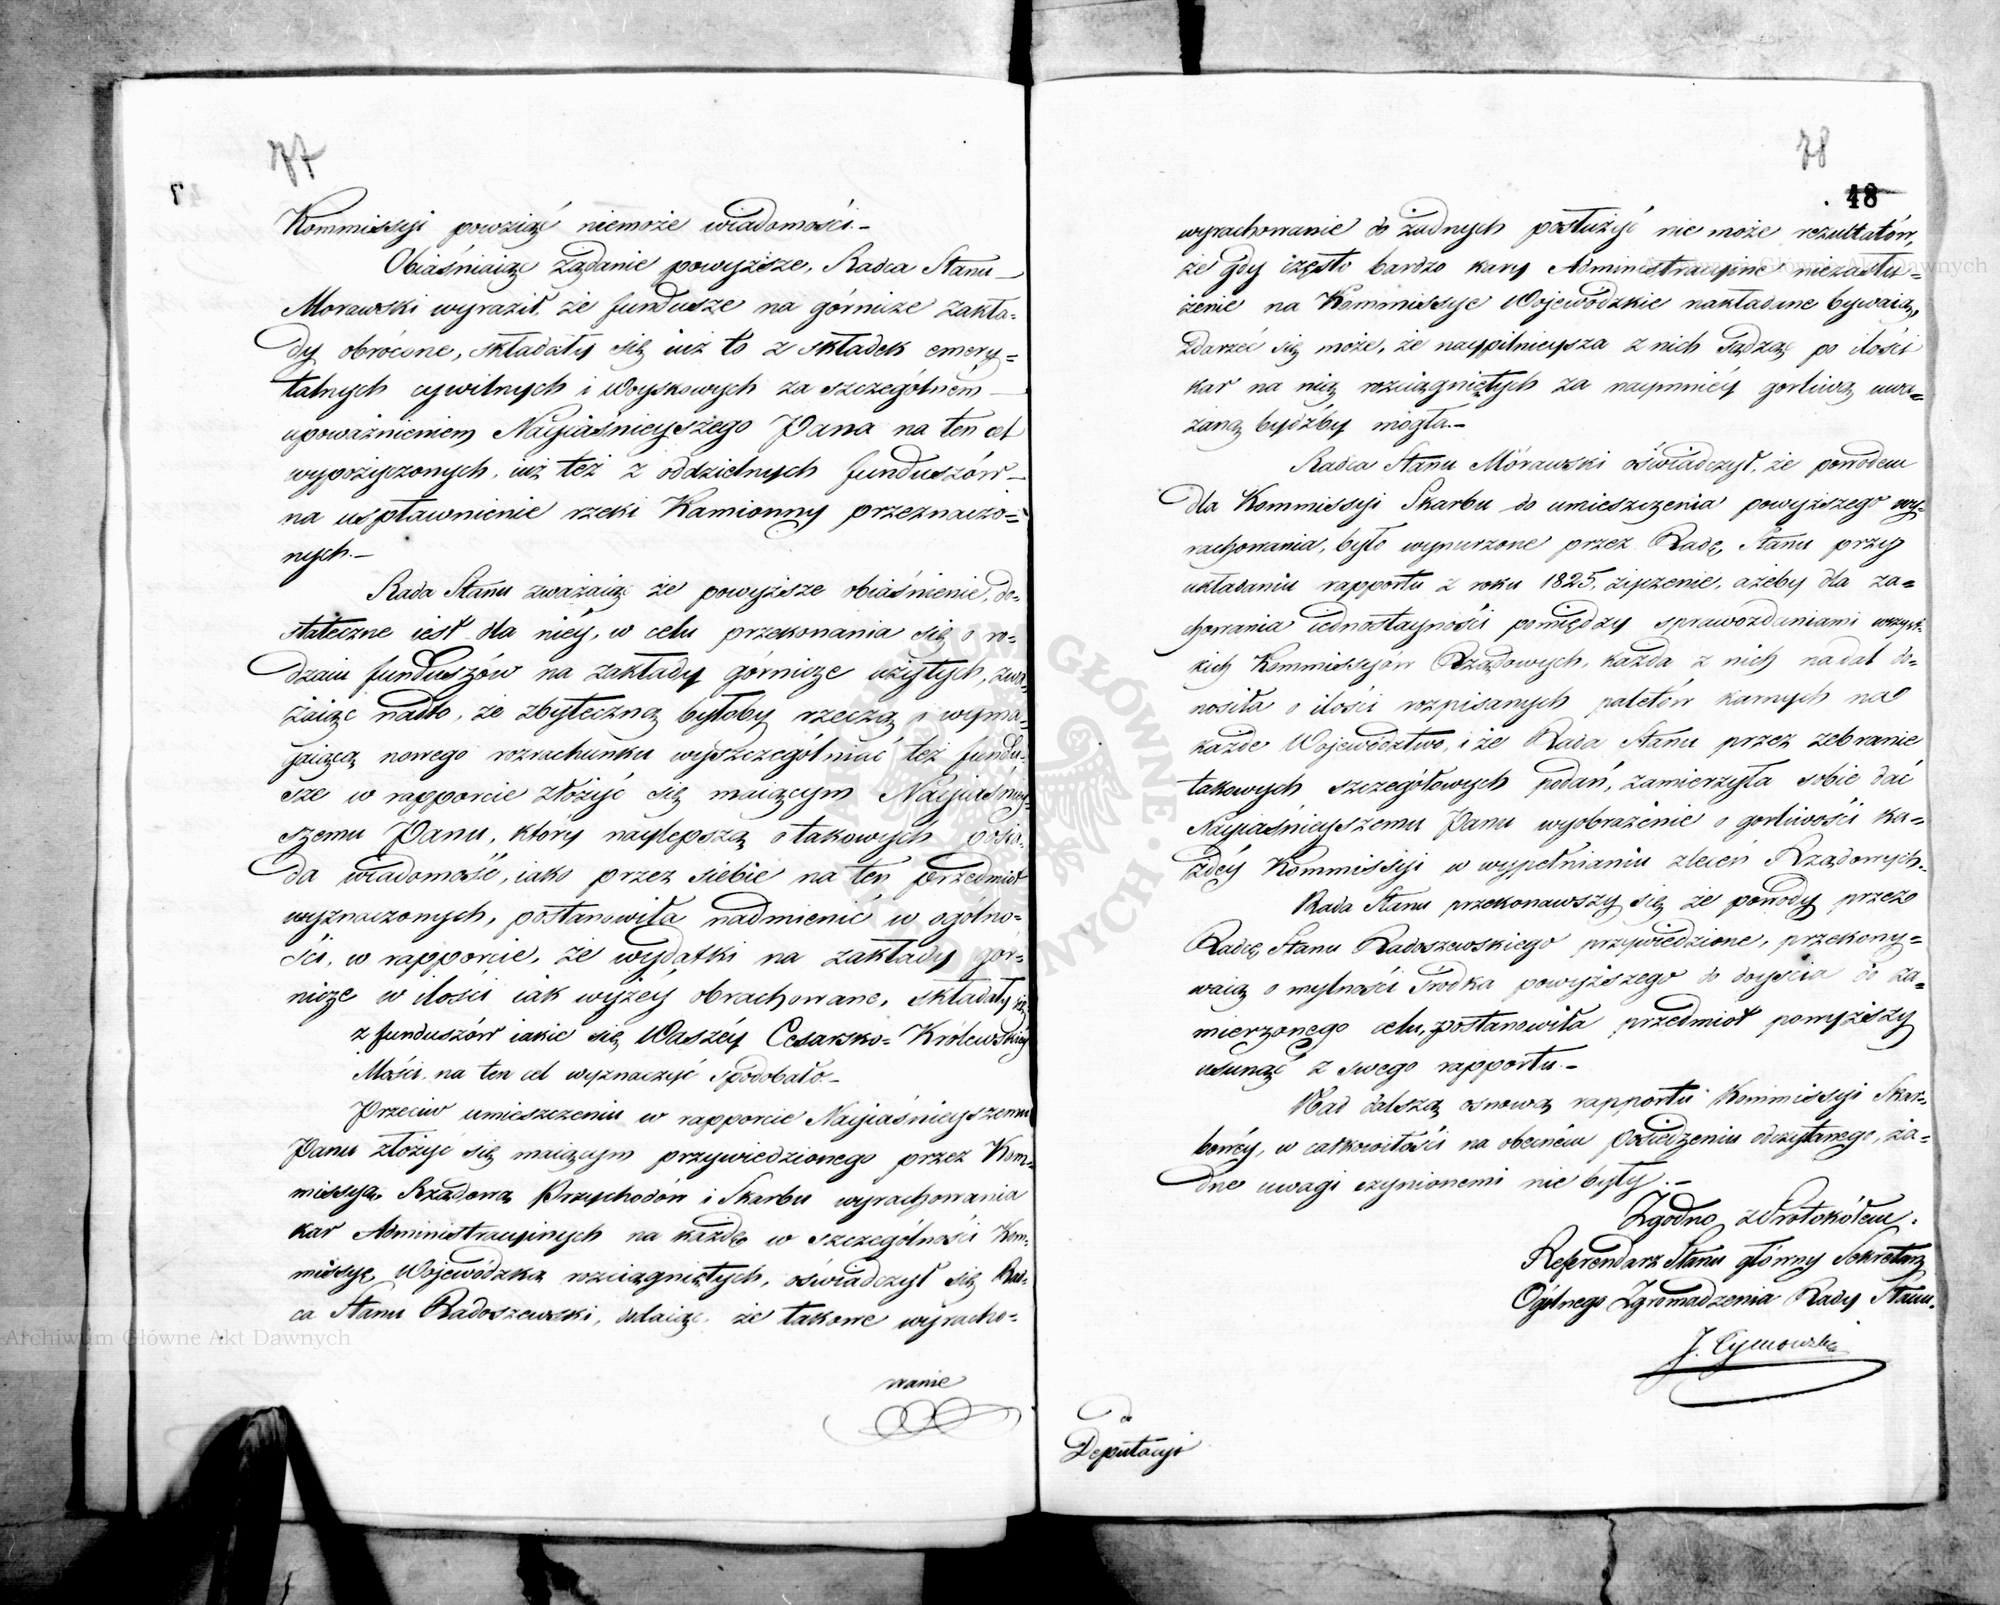 77
Kommissyi powziąć niemoże wiadomości.–
Obiaśniaiąc żądanie powyższe, Radca Stanu
Morawski wyraził, że fundusze na górnicze zakła=
dy obrócone, składały się iuż to z składek emery=
talnych cywilnych i Woyskowych za szczególném
upoważnieniem Nayiaśnieyszego Pana na ten cel
wypożyczonych, iuż też z oddzielnych funduszów
na uspławnienie rzeki Kamionny przeznaczo=
nych.–
Rada Stanu zważaiąc że powyższe obiaśnienie, do=
stateczne iest dla niéy, w celu przekonania się o ro=
dzaiu funduszów na zakłady górnicze użytych, zwa=
żaiąc nadto, że zbyteczną byłoby rzeczą i wyma=
gaiącą nowego rozrachunku wyszczególniać też fundu=
sze w rapporcie złożyć się maiącym Nayiaśniey=
szemu Panu, który naylepszą o takowych posia=
da wiadomość, iako przez siebie na ten przedmiot
wyznaczonych, postanowiła nadmienić w ogólno=
ści, w rapporcie, że wydatki na zakłady gór=
nicze w ilości iak wyżéy obrachowane, składały się
z funduszów iakie się Waszéy Cesarsko= Królewskiéy
Mości, na ten cel wyznaczyć spodobało.–
Przeciw umieszczeniu w rapporcie Nayiaśnieyszemu
Panu złożyć się maiącym przywiedzionego przez Kom=
missyą Rządową Przychodów i Skarbu wyrachowania
kar Administracyinych na każdę w szczególności Kom=
missyę Wojewódzką rozciągniętych, oświadczył się Rad=
ca Stanu Radoszewski, dodaiąc, że takowe wyracho=
wanie
78
48
wyrachowanie do żadnych posłużyć nie może rezultatów,
że gdy często bardzo kary Administracyine niezasłu=
żenie na Kommissye Wojewódzkie nakładane bywaią,
zdarzeć się może, że naypilnieysza z nich sądząc po ilości
kar na nią rozciągniętych za naymniéy gorliwą uwa=
żaną bydźby mogła.–
Radca Stanu Morawski oświadczył, że powodem
dla Kommissyi Skarbu do umieszczenia powyższego wy=
rachowania, było wynurzone przez Radę Stanu przy
układaniu rapportu z roku 1825, życzenie, ażeby dla za=
chowania iednostayności pomiędzy sprawozdaniami wszyst=
kich Kommissyów Rządowych, każda z nich nadal do=
nosiła o ilości rozpisanych paletów karnych na
każde Województwo, i że Rada Stanu przez zebranie
takowych szczegółowych podań, zamierzyła sobie dać
Nayiaśnieyszemu Panu wyobrażenie o gorliwości ka=
żdéy Kommissyi w wypełnianiu zleceń Rządowych.–
Rada Stanu przekonawszy się że powody przez
Radcę Stanu Radoszewskiego przywiedzione, przekony=
waią o mylności środka powyższego do doyścia do za=
mierzonego celu, postanowiła przedmiot powyższy
usunąć z swego rapportu.–
Nad dalszą osnową rapportu Kommissyi Skar=
bowéy, w całkowitości na obecném Posiedzeniu odczytanego, ża=
dne uwagi czynionemi nie były.–
Zgodno z Protokółem.
Referendarz Stanu główny Sekretarz
Ogólnego Zgromadzenia Rady Stanu.
do
Deputacyi
Archiwum Główne Akt Dawnych